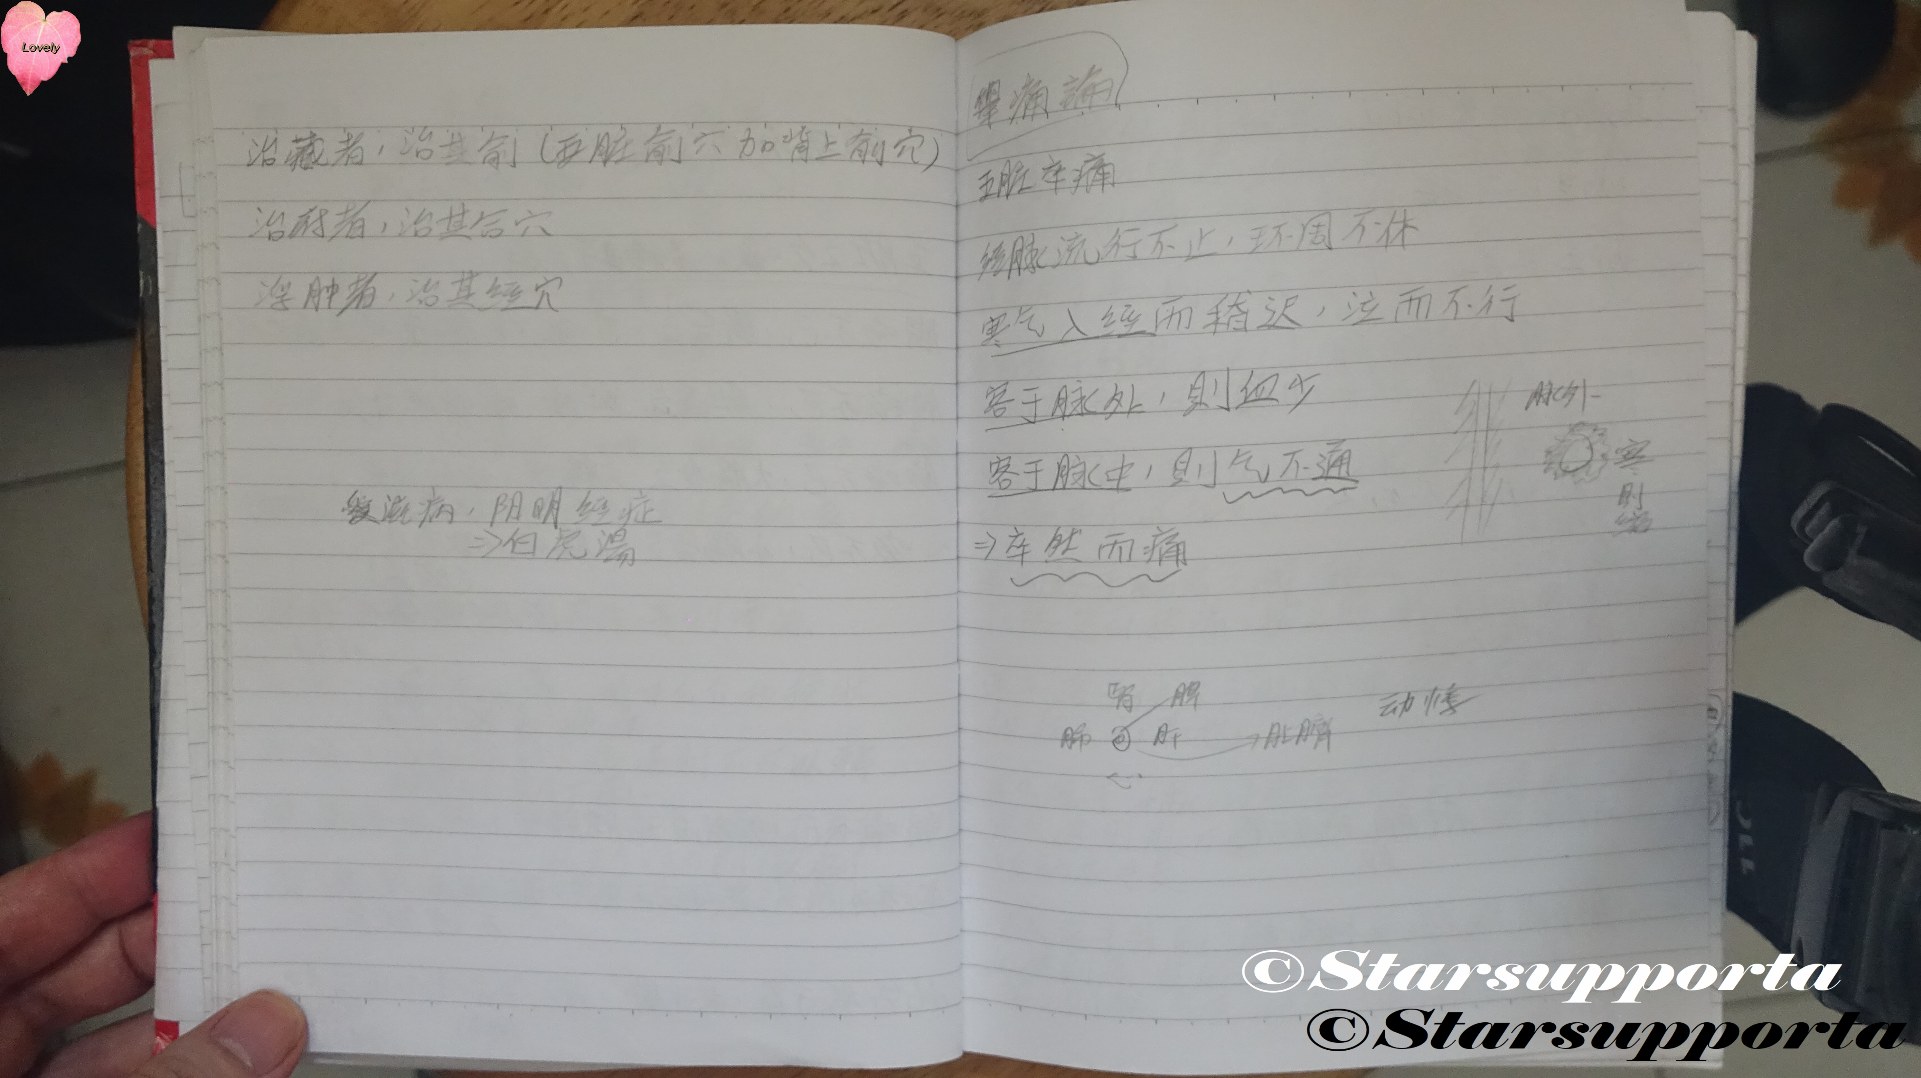 Lovely
治藏者，治其俞（五脏俞穴加背上俞穴）
治府者，治其合穴
浮肿者，治其经穴
病，阳明经症
⇒白虎湯
舉痛論
五脏卒痛
经脉流行不止，环周不休
寒气入经而稽迟，泣而不行
客于脉外，则血少
客于脉中，则气不通
⇒卒然而痛
脉外
寒
则
肾 脾
肺 肝 →肚臍
动悸
©Starsupporta
©Starsupporta